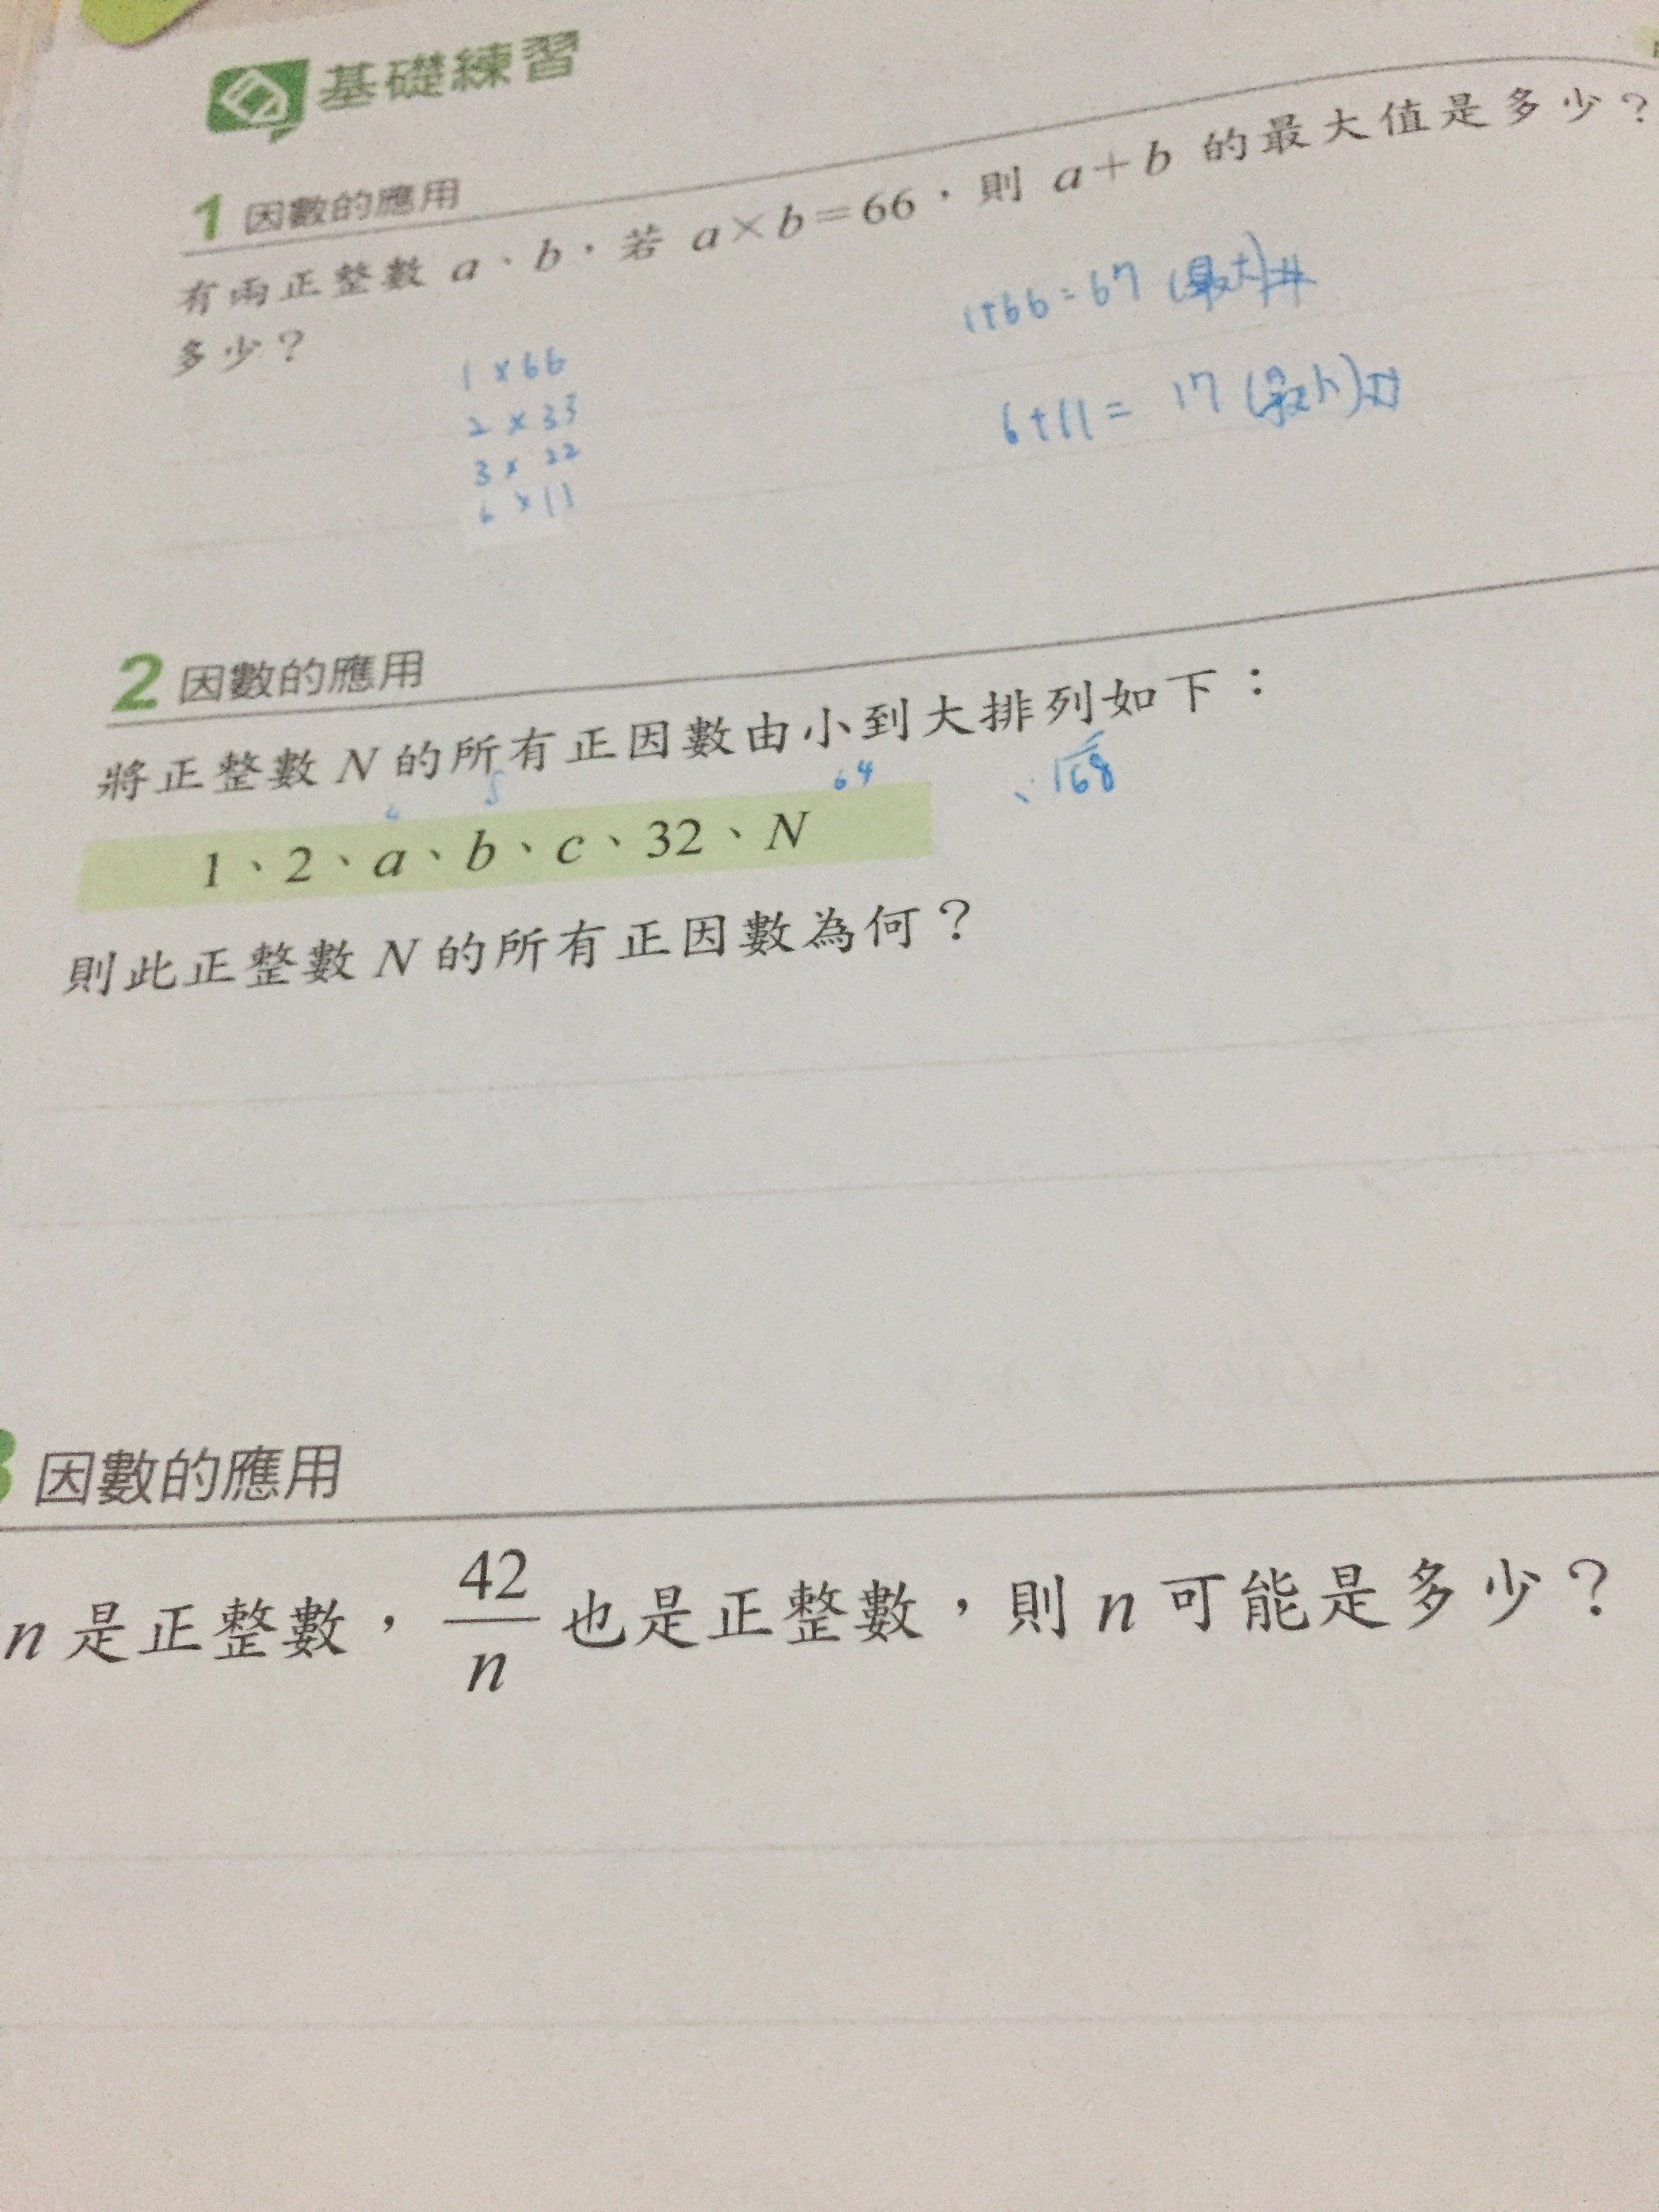 基礎練習
1 因數的應用
有兩正整數 a、b，若 a×b=66，則 a+b 的最大值是多少？
多少？
1+66=67 (最大)#
1×66
2×33
3×22
6×11
6+11= 17 (最小)#
2 因數的應用
將正整數 N 的所有正因數由小到大排列如下：
64
168
1、2、a、b、c、32、N
則此正整數 N 的所有正因數為何？
因數的應用
n 是正整數，42/n 也是正整數，則 n 可能是多少？